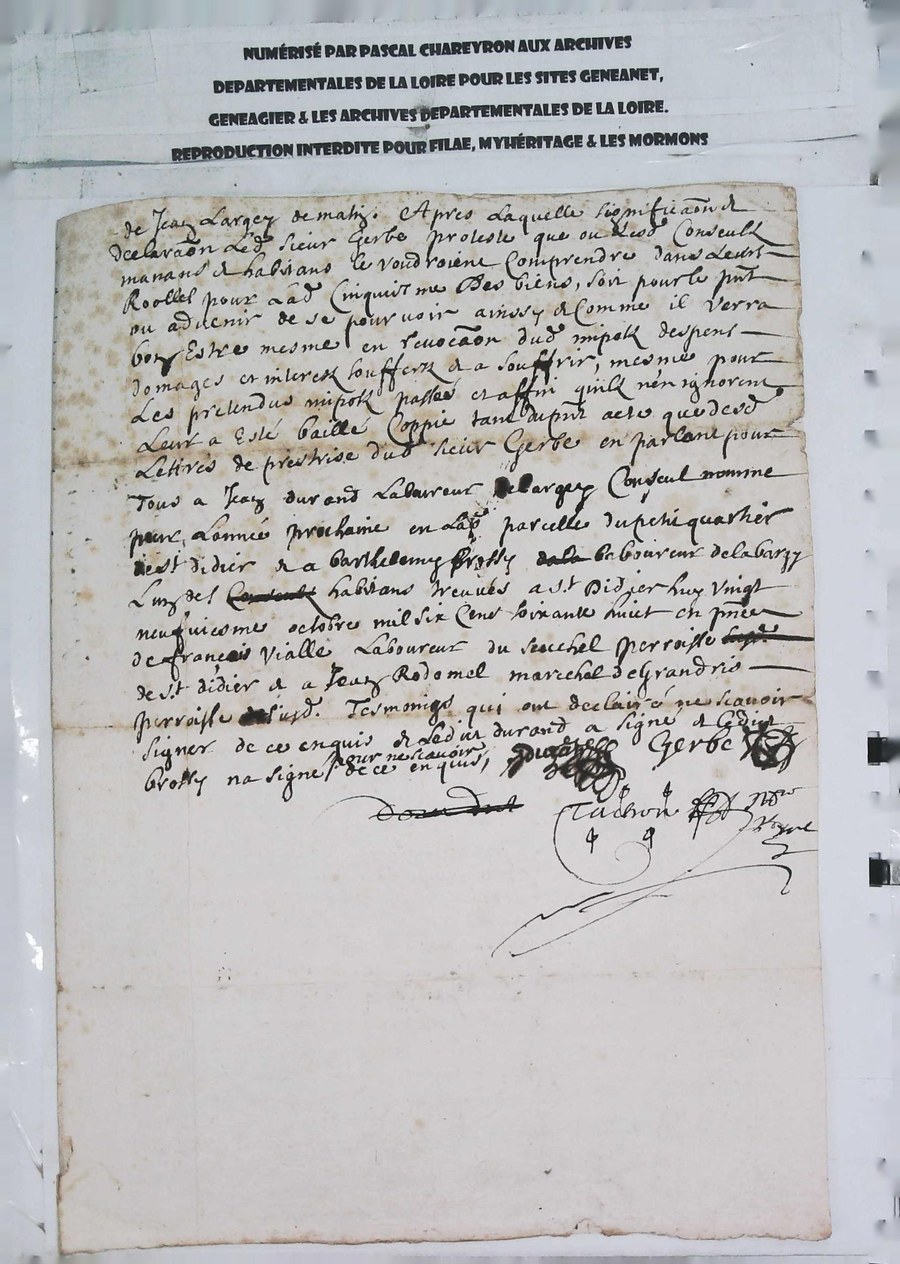 NUMÉRISÉ PAR PASCAL CHAREYRON AUX ARCHIVES
DEPARTEMENTALES DE LA LOIRE POUR LES SITES GENEANET,
GENEAGIER & LES ARCHIVES DEPARTEMENTALES DE LA LOIRE.
REPRODUCTION INTERDITE POUR FILAE, MYHÉRITAGE & LES MORMONS
de Jean Largey de matin. Apres Laquelle significaon &
declaraon Led. sieur Gerbe proteste que ou Lesd. Consculz
manans & habitans le voudroient Comprendre dans Leurs
Roolles pour Lad. Cinquisme Des biens, soit pour le pnt
ou advenir de se pourvoir ainssy & Comme il verra
bon Estre mesme en revocaon dud. impotz despens
domages et interestz soufferts & a souffrir, mesme pour
Les pretendus impotz passés et affin quilz n'en ignorent
Leur a Esté baillé Coppie tant du pnt acte que desd.
Lettres de prestrise dud. sieur Gerbe en parlant pour
Tous a Jean durand Laboureur Largey Conseul nomine
pour Lannée prochaine en Lad. parcelle du petit quartier
de st didier & a barthelemy brossy Laboureur de la barzy
Lun des habitans treuvés a st. Didier huy vingt
neufviesme octobre mil six Cens soixante huict en pnce
de françois vialle Laboureur du seuchel perroisse
de st. didier & a Jean Rodomel mareschel de Grandris
perroisse susd. Tesmoings qui ont declairé ne scavoir
signer de ce enquis & Ledict durand a signé & Ledict
brossy na signé pour ne scavoir de ce enquis,
durand Gerbe
Tachon